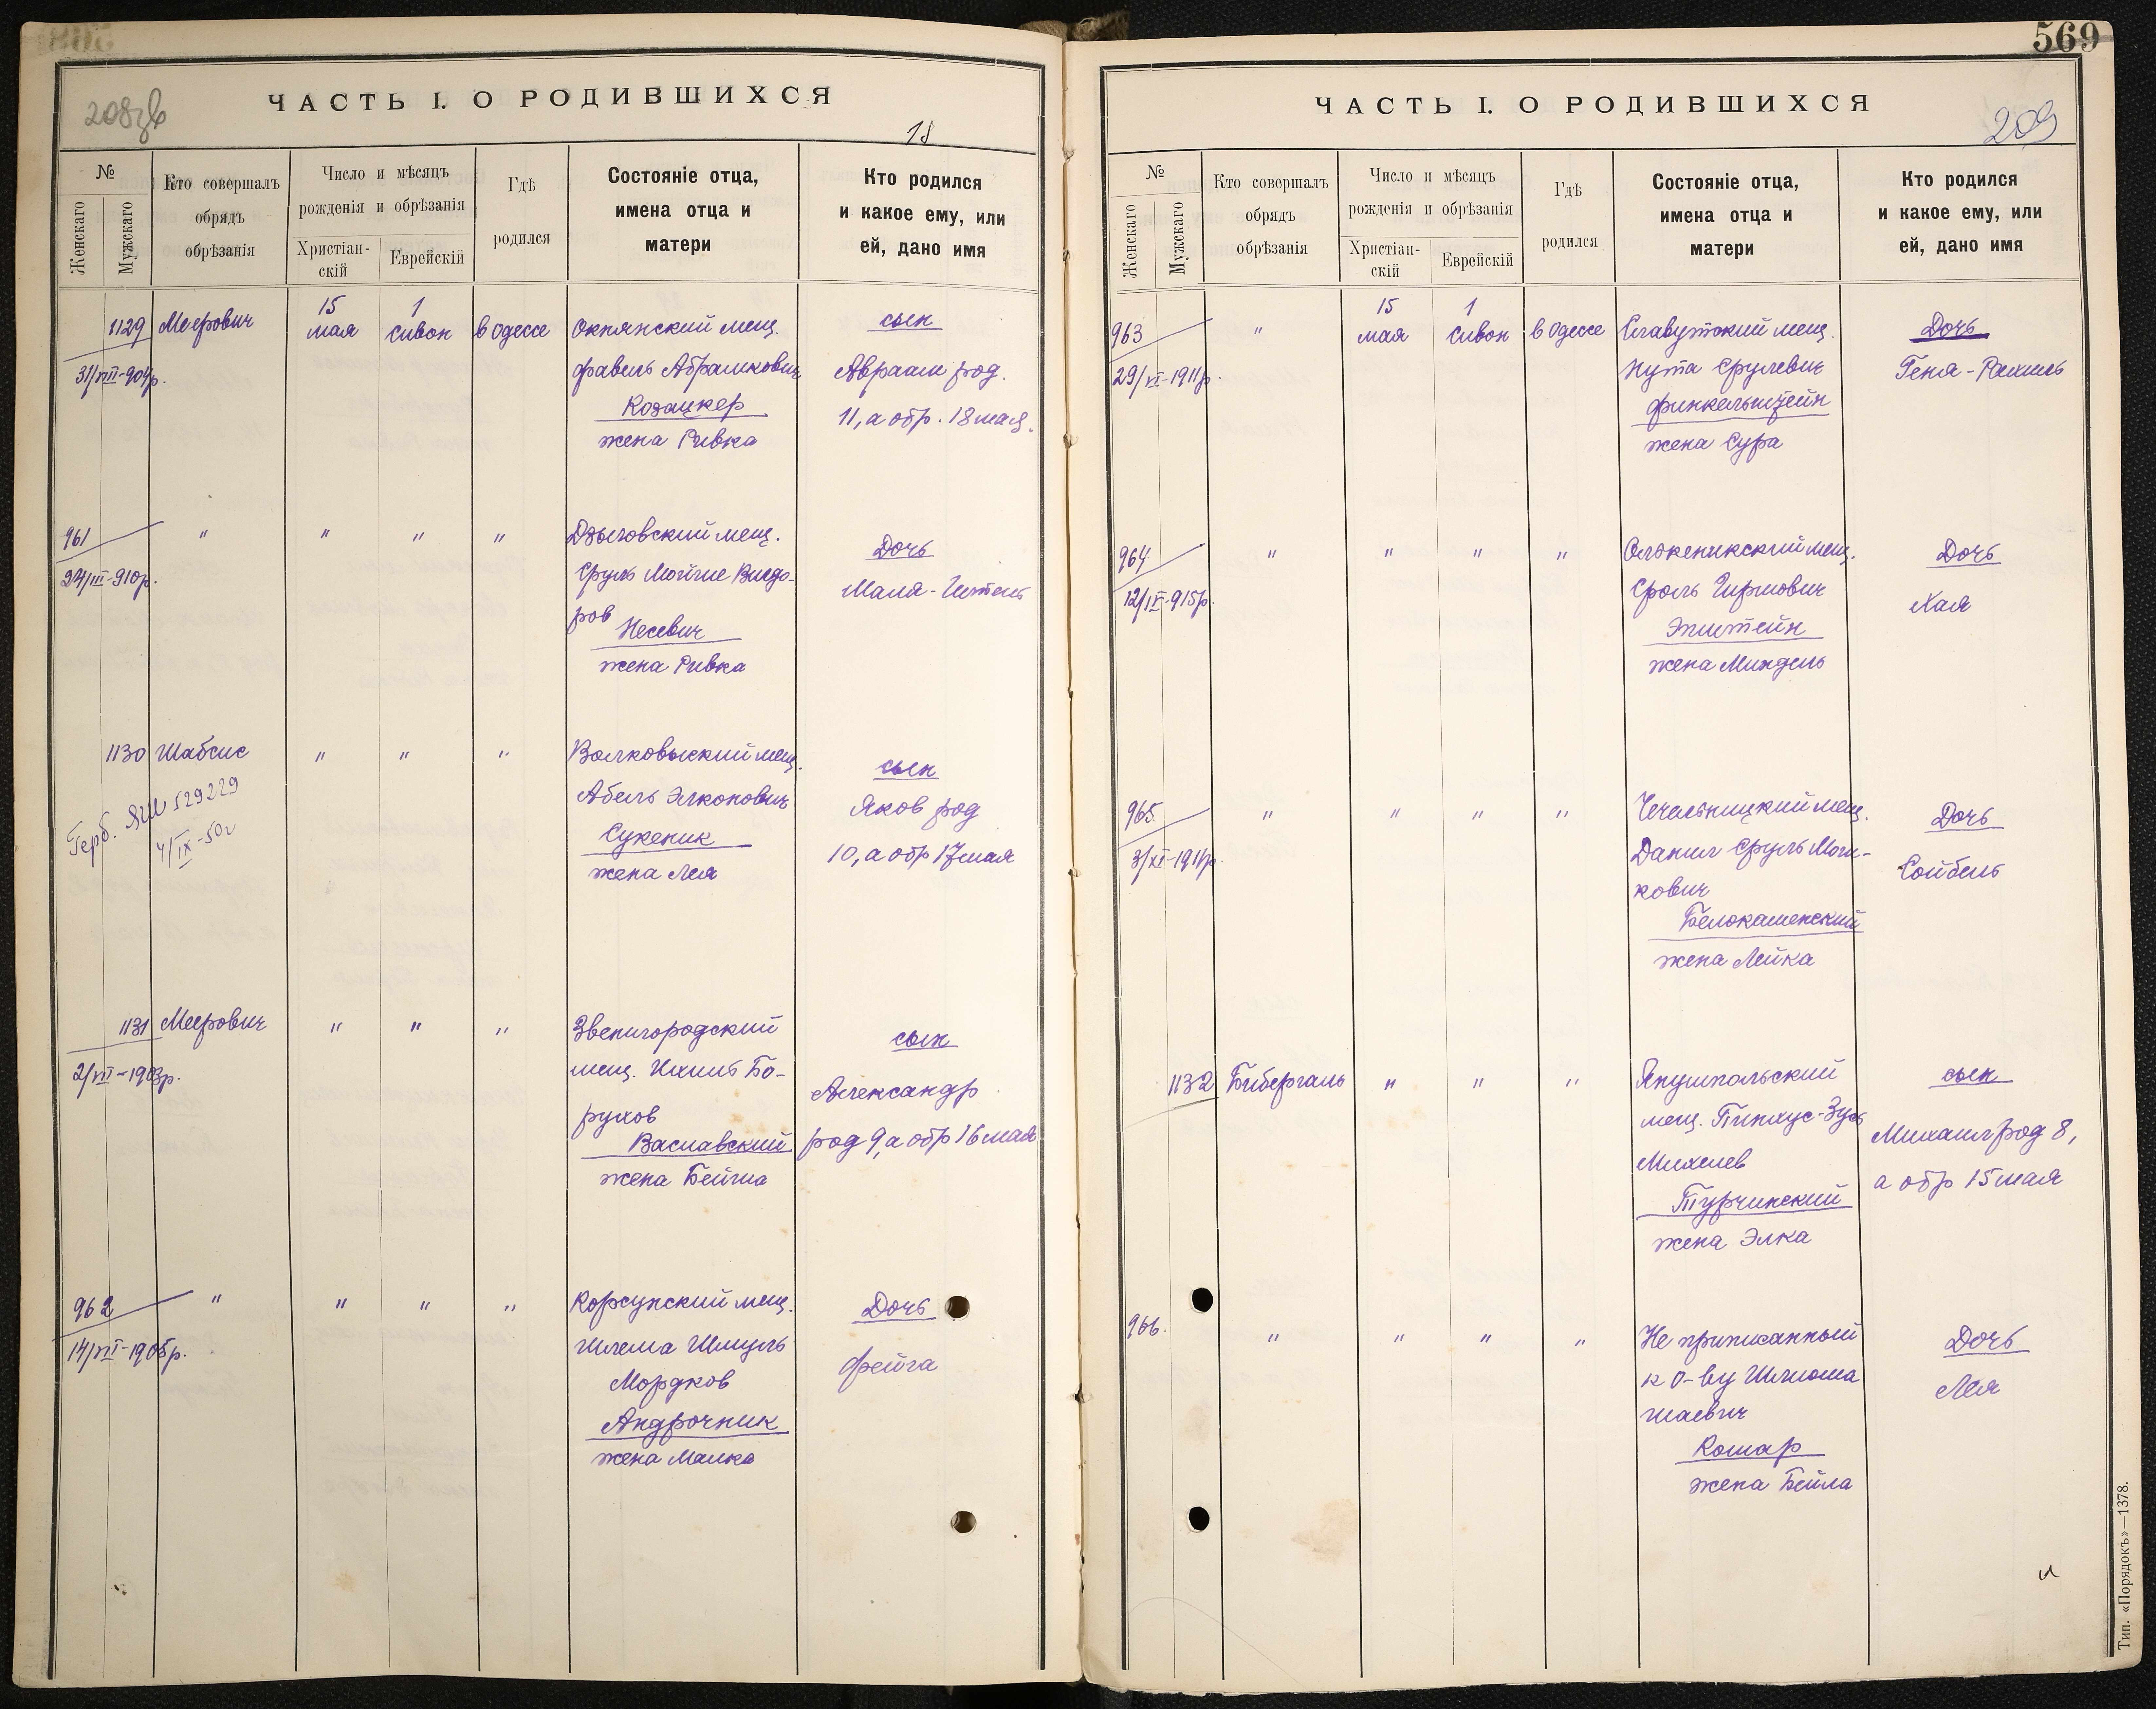 569
ЧАСТЬ I. О РОДИВШИХСЯ
18
№
Женскаго
Мужскаго
Кто совершалъ
обрядъ
обрѣзанія
Число и мѣсяцъ
рожденія и обрѣзанія
Христіан-
скій
Еврейскій
Гдѣ
родился
Состояніе отца,
имена отца и
матери
Кто родился
и какое ему, или
ей, дано имя
1129 Меерович 15 мая 1 Сивон в Одессе Окнянский мещ. сын
31/VIII-904р. Фавель Абрамкович Авраам род.
Козацкер 11, а обр. 18 мая.
жена Ривка
961 " " " " Дзыговский мещ. Дочь
24/III-910р. Сруль Мойше Вигдо- Маля-
ров
Несевич
жена Ривка
1130 Шабсис " " " Волковыский мещ. сын
Герб. ЯШ 529229 Абель Элконович Яков род
4/IX-50г Сукеник 10, а обр 17 мая
жена Лея
1131 Меерович " " " Звенигородский сын
2/VII-1903р. мещ. Ихиль Бо- Александр
рухов род 9, а обр 16 мая
Ваславский
жена Бейла
962 " " " " Корсунский мещ. Дочь
Шлема Шмуль Фейга
Мордков
Андрочник
жена Малка
ЧАСТЬ I. О РОДИВШИХСЯ
209
№
Женскаго
Мужскаго
Кто совершалъ
обрядъ
обрѣзанія
Число и мѣсяцъ
рожденія и обрѣзанія
Христіан-
скій
Еврейскій
Гдѣ
родился
Состояніе отца,
имена отца и
матери
Кто родился
и какое ему, или
ей, дано имя
963 " 15 мая 1 Сивон в Одессе Славутский мещ. Дочь
29/VI-1911р. Нута Срулевич Геня-Рахиль
Финкельштейн
жена Сура
964 " " " " мещ. Дочь
12/IX-915р. Сроль Гиршович Хая
Эпштейн
жена Миндель
965 " " " " Чечельницкий мещ. Дочь
3/XI-1911р. Данил Сруль Мош- Сойбель
кович
Белокаменский
жена Лейка
1132 Бибергаль " " " Янушпольский сын
мещ. Пинхус-Зусь Михаил род 8,
Михелев а обр 15 мая
Турчинский
жена Элка
966. " " " " Не приписанный Дочь
к о-ву Шлиома Лея
шаевич
Кошар
жена Бейла
Тип. «Порядокъ»—1378.